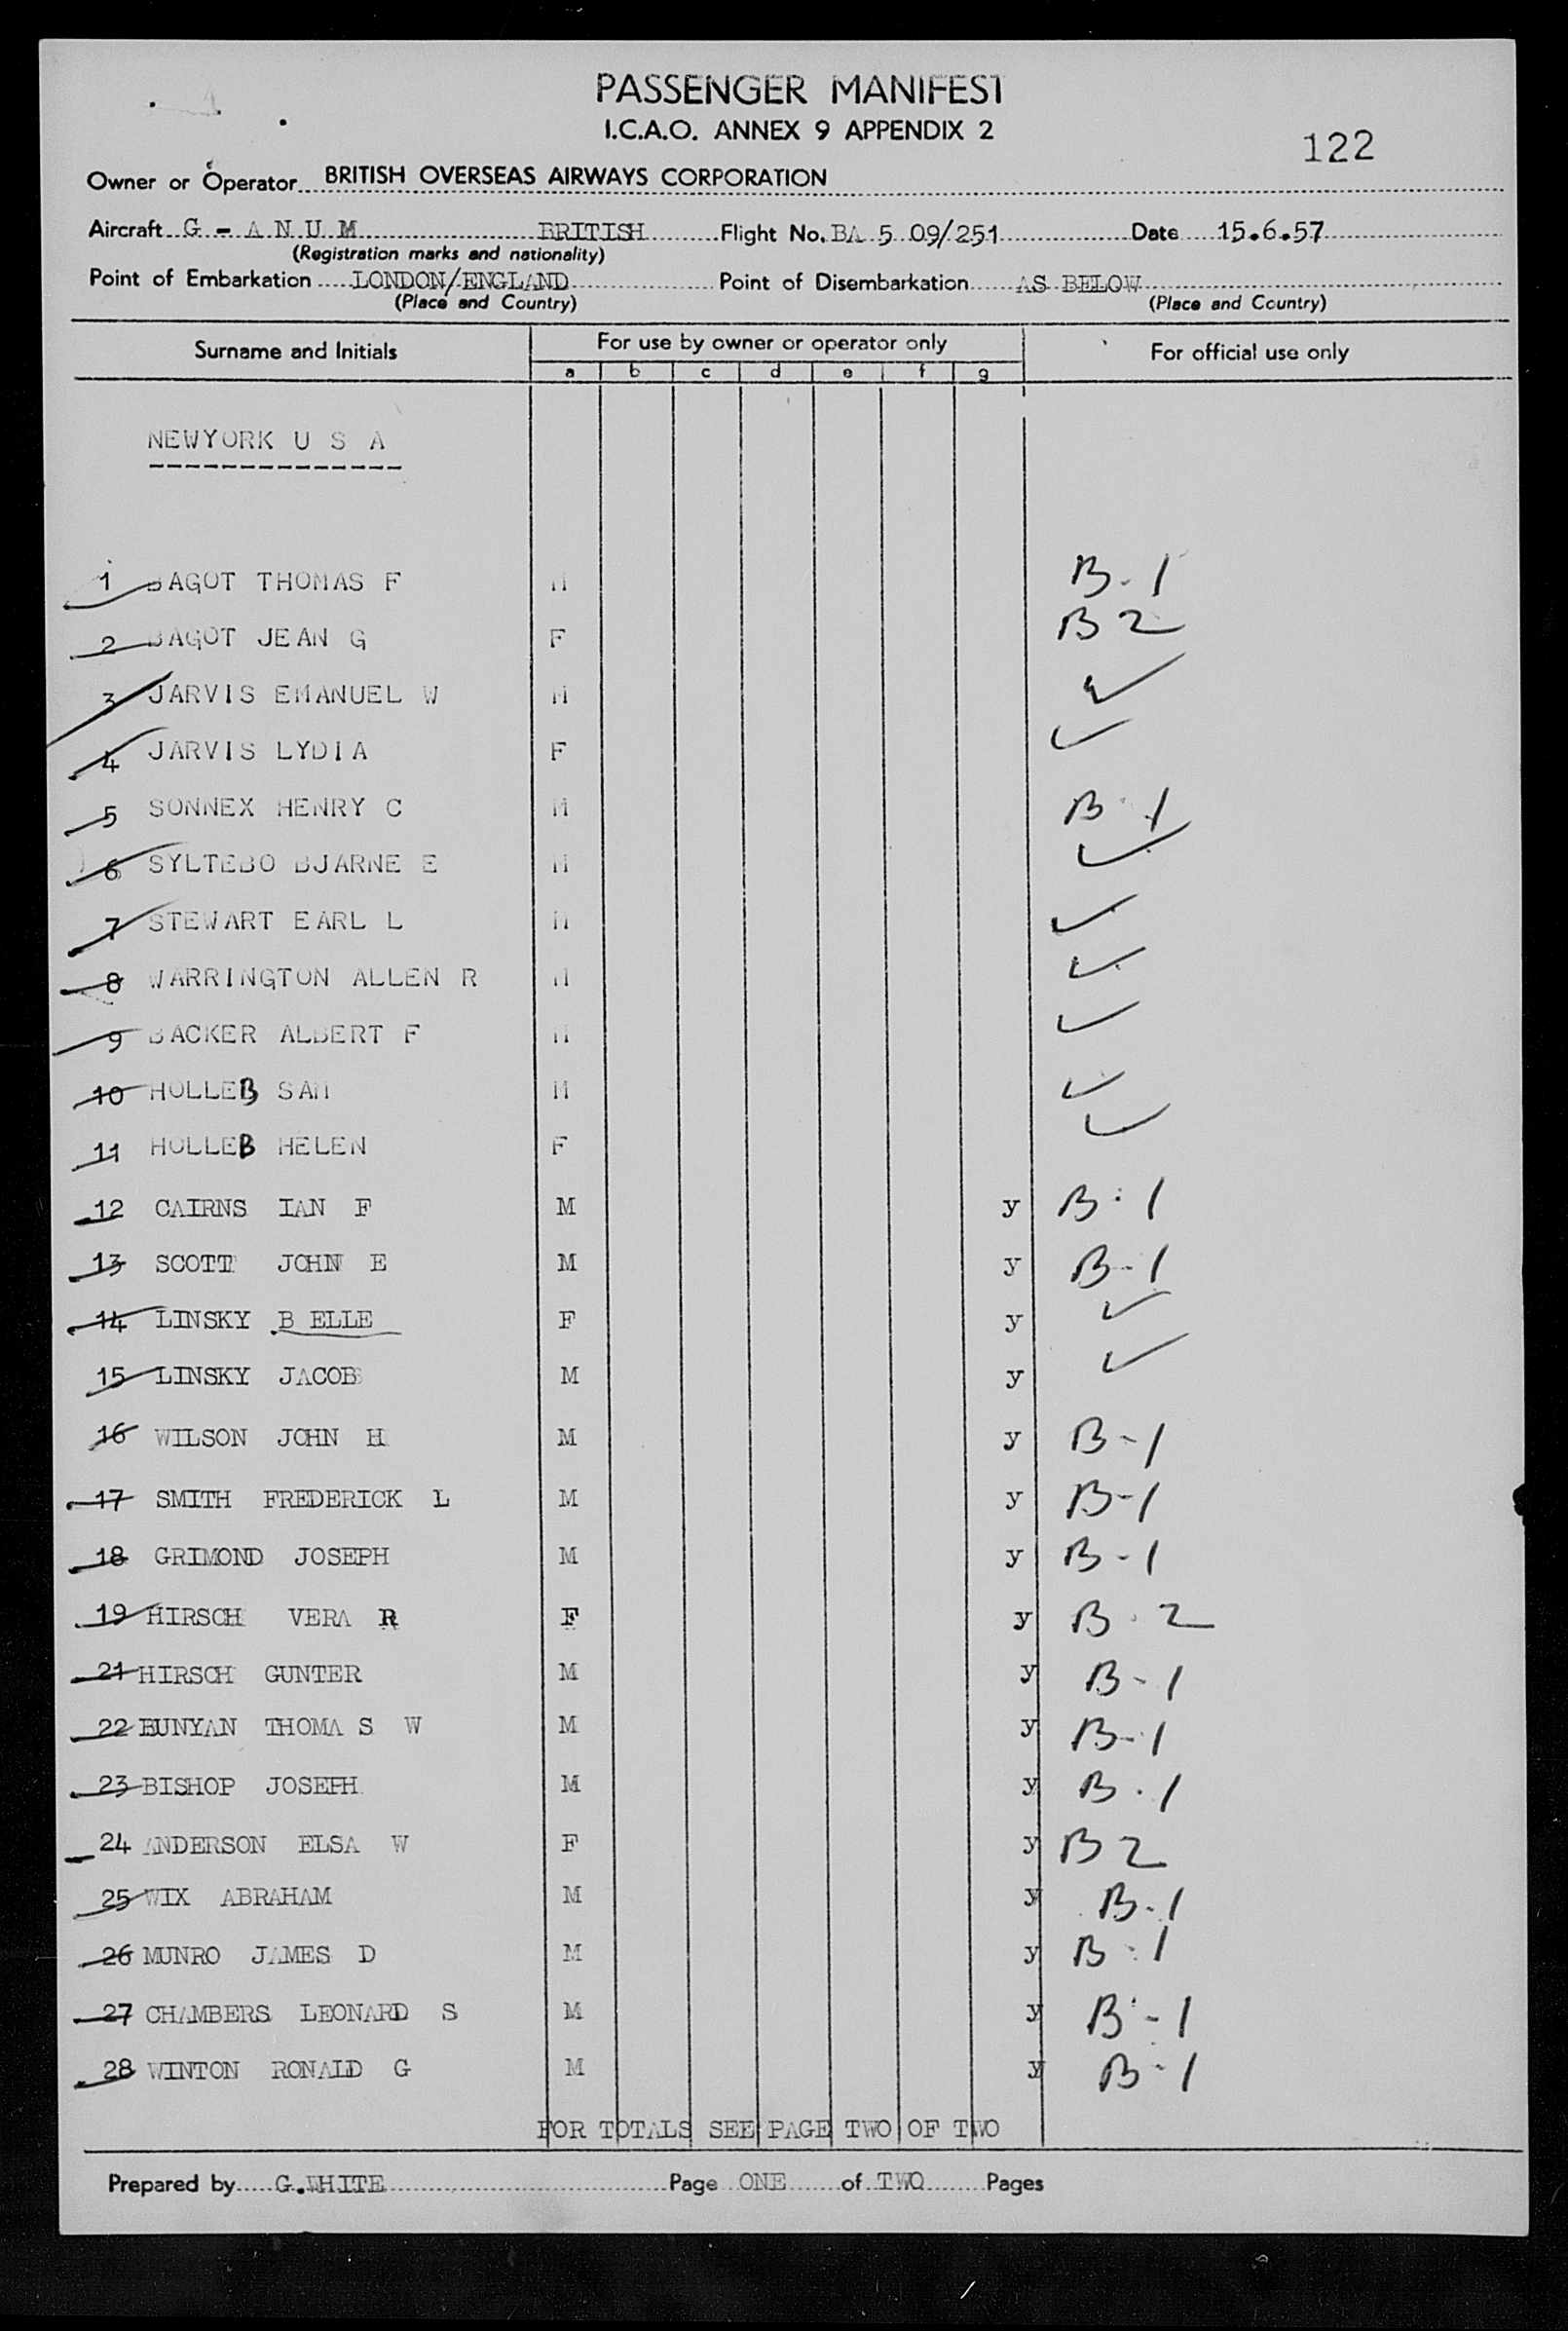 PASSENGER MANIFEST
I.C.A.O. ANNEX 9 APPENDIX 2
122
Owner or Operator BRITISH OVERSEAS AIRWAYS CORPORATION
Aircraft G - A N U M BRITISH Flight No. BA 5 09/251 Date 15.6.57
(Registration marks and nationality)
Point of Embarkation LONDON/ENGLAND Point of Disembarkation AS BELOW
(Place and Country) (Place and Country)
Surname and Initials For use by owner or operator only For official use only
a b c d e f g
NEWYORK U S A
--------------
1 BAGOT THOMAS F M B-1
2 BAGOT JEAN G F B 2
3 JARVIS EMANUEL W M ✓
4 JARVIS LYDIA F ✓
5 SONNEX HENRY C M B-1
6 SYLTEBO BJARNE E M ✓
7 STEWART EARL L M ✓
8 WARRINGTON ALLEN R M ✓
9 BACKER ALBERT F M ✓
10 HOLLEB SAM M ✓
11 HOLLEB HELEN F ✓
12 CAIRNS IAN F M y B-1
13 SCOTT JOHN E M y B-1
14 LINSKY B ELLE F y ✓
15 LINSKY JACOB M y ✓
16 WILSON JOHN H M y B-1
17 SMITH FREDERICK L M y B-1
18 GRIMOND JOSEPH M y B-1
19 HIRSCH VERA R F y B-2
21 HIRSCH GUNTER M y B-1
22 BUNYAN THOMA S W M y B-1
23 BISHOP JOSEPH M y B-1
24 ANDERSON ELSA W F y B 2
25 WIX ABRAHAM M y B-1
26 MUNRO JAMES D M y B-1
27 CHAMBERS LEONARD S M y B-1
28 WINTON RONALD G M y B-1
FOR TOTALS SEE PAGE TWO OF TWO
Prepared by G.WHITE Page ONE of TWO Pages